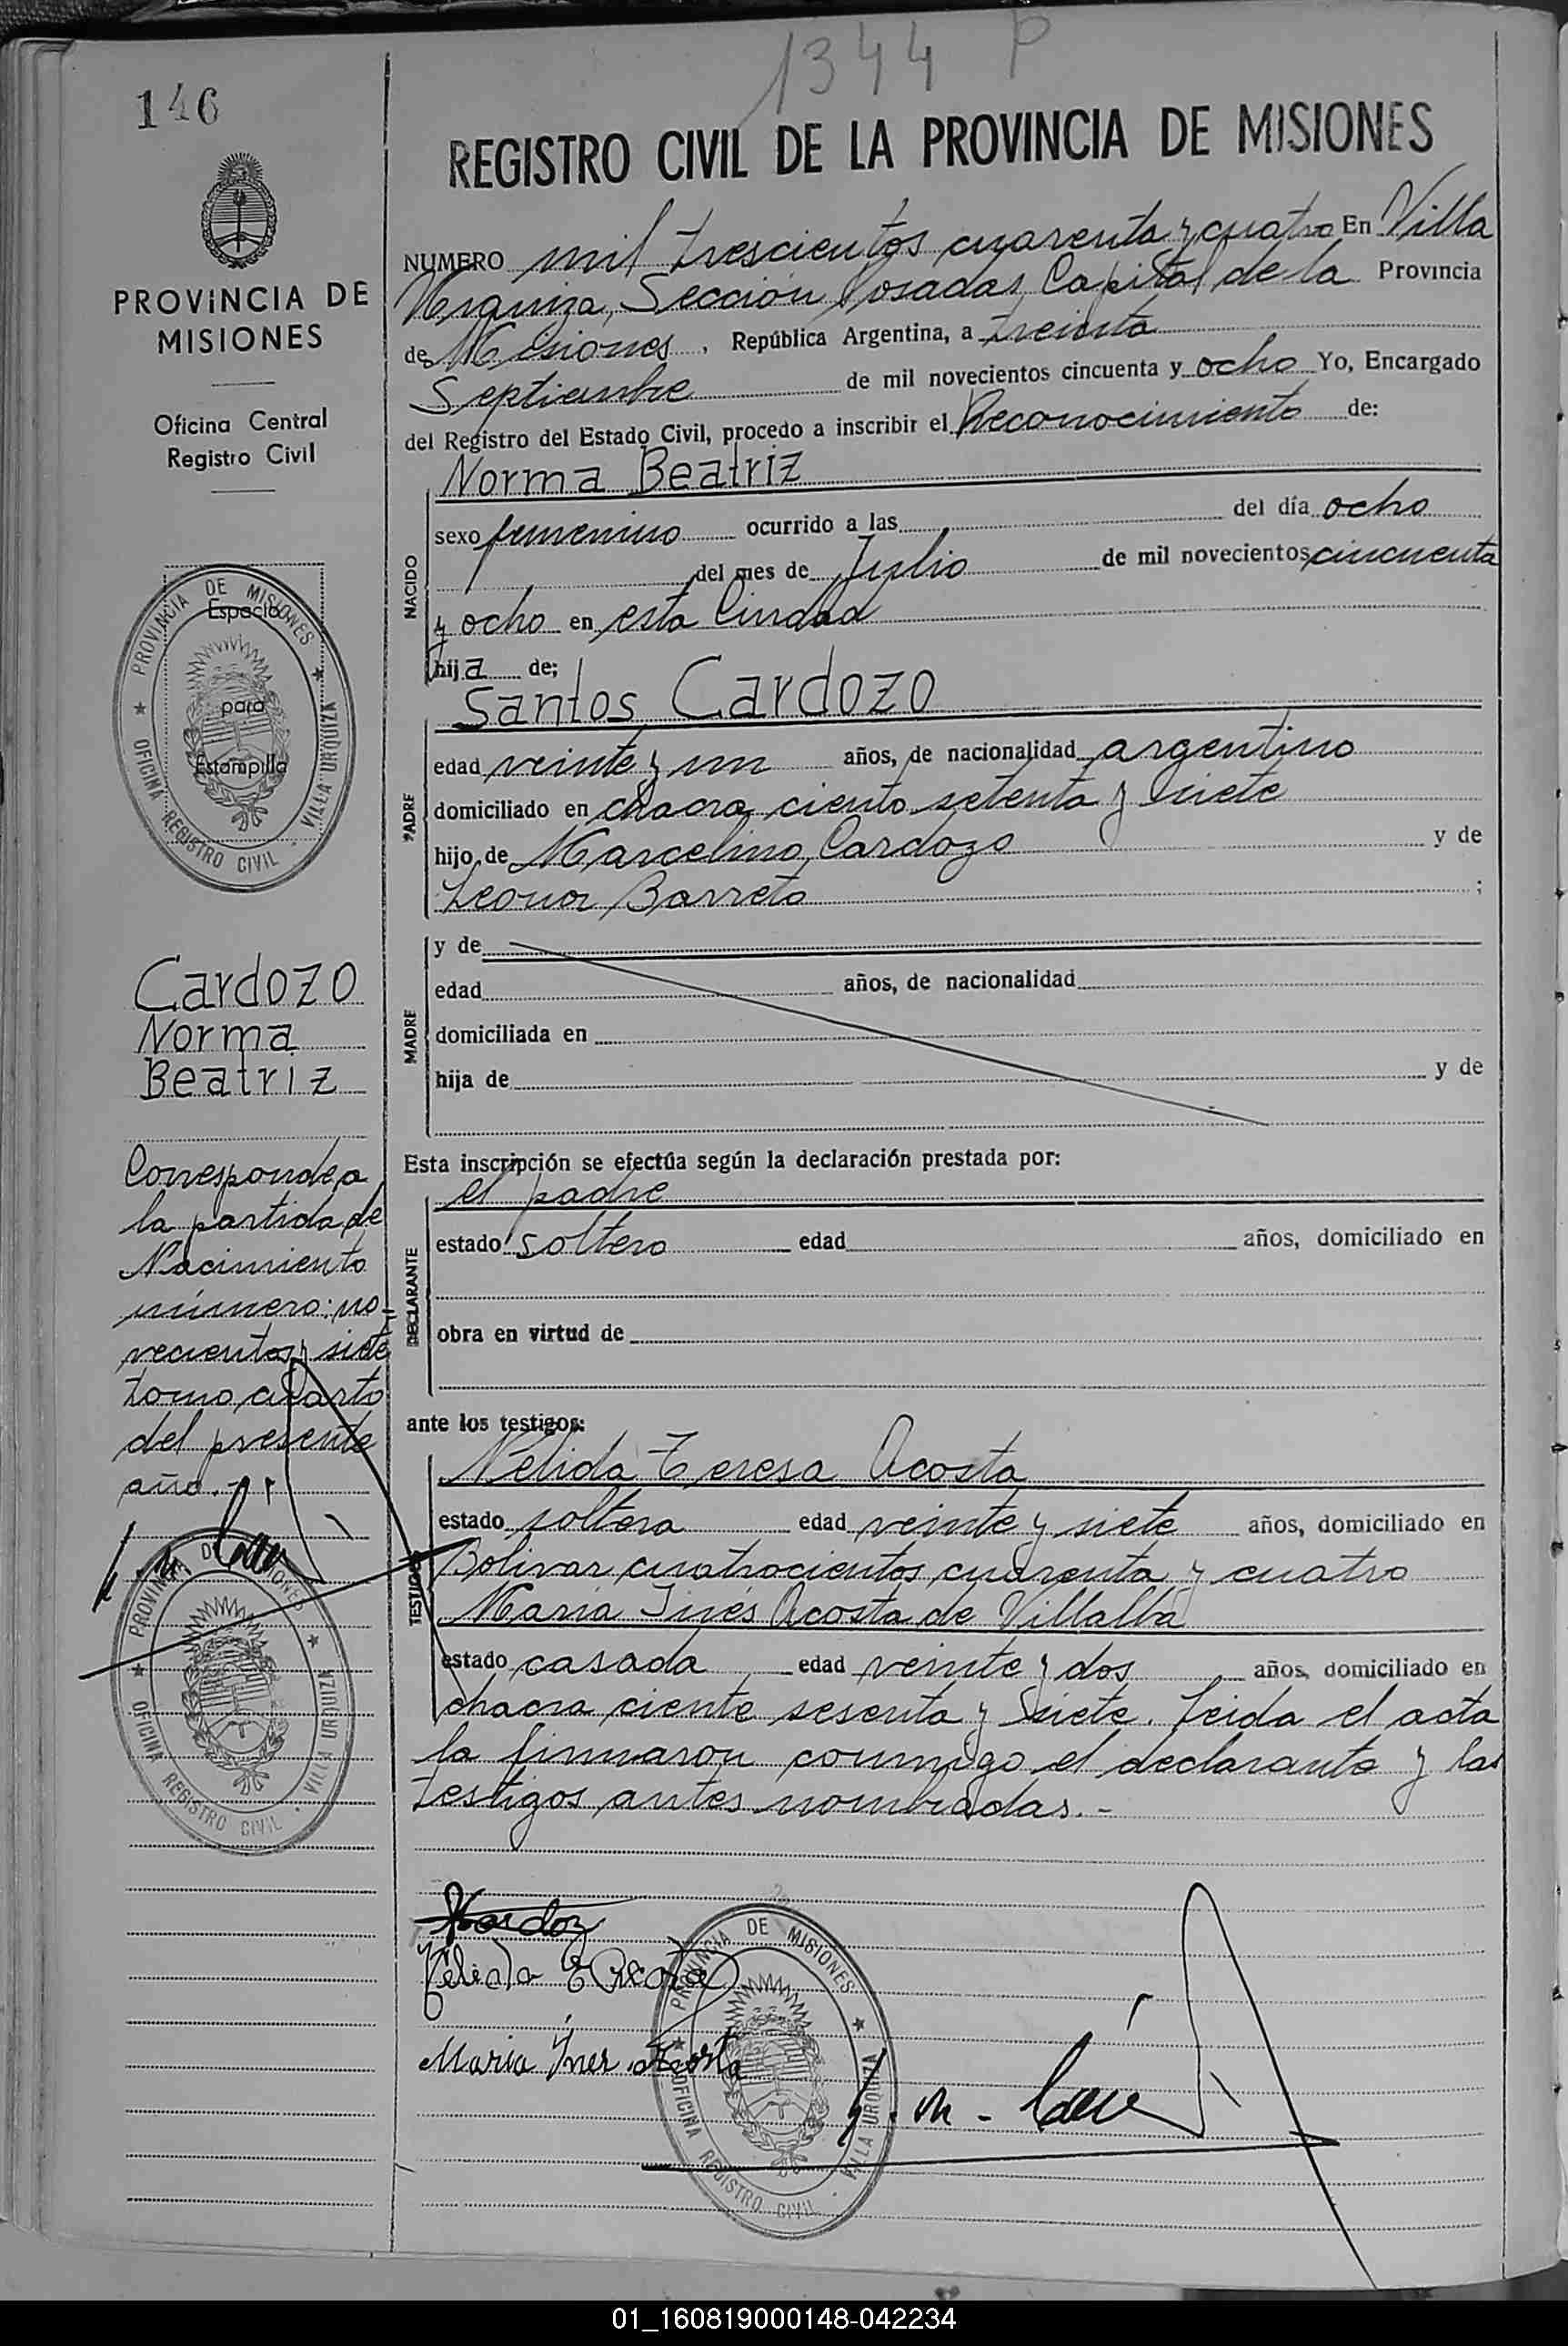 1344 P
146
REGISTRO CIVIL DE LA PROVINCIA DE MISIONES
PROVINCIA DE
MISIONES
Oficina Central
Registro Civil
NUMERO mil trescientos cuarenta y cuatro En Villa
Urquiza, Sección Posadas, Capital de la Provincia
de Misiones, República Argentina, a treinta
Septiembre de mil novecientos cincuenta y ocho Yo, Encargado
del Registro del Estado Civil, procedo a inscribir el Reconocimiento de:
Norma Beatriz
NACIDO
sexo femenino ocurrido a las del día ocho
del mes de Julio de mil novecientos cincuenta
y ocho en esta Ciudad
hija de;
Santos Cardozo
PADRE
edad veinte y un años, de nacionalidad argentino
domiciliado en chacra ciento setenta y siete
hijo de Marcelino Cardozo y de
Leonor Barreto ;
MADRE
y de
edad años, de nacionalidad
domiciliada en
hija de y de
Esta inscripción se efectúa según la declaración prestada por:
el padre
DECLARANTE
estado soltero edad años, domiciliado en
obra en virtud de
ante los testigos:
Nelida Teresa Acosta
TESTIGOS
estado soltera edad veinte y siete años, domiciliado en
Bolivar cuatrocientos cuarenta y cuatro
Maria Inés Acosta de Villalba
estado casada edad veinte y dos años, domiciliado en
chacra ciento sesenta y siete. Leida el acta
la firmaron conmigo el declarante y las
testigos antes nombradas.-
Nelida T Acosta
Maria Ines Acosta
PROVINCIA DE MISIONES
OFICINA REGISTRO CIVIL · VILLA URQUIZA
Espacio
para
Estampilla
PROVINCIA DE MISIONES
OFICINA REGISTRO CIVIL · VILLA URQUIZA
Cardozo
Norma
Beatriz
Corresponde a
la partida de
Nacimiento
número: no=
vecientos y siete
tomo cuarto
del presente
año.-
PROVINCIA DE MISIONES
OFICINA REGISTRO CIVIL · VILLA URQUIZA
01_160819000148-042234